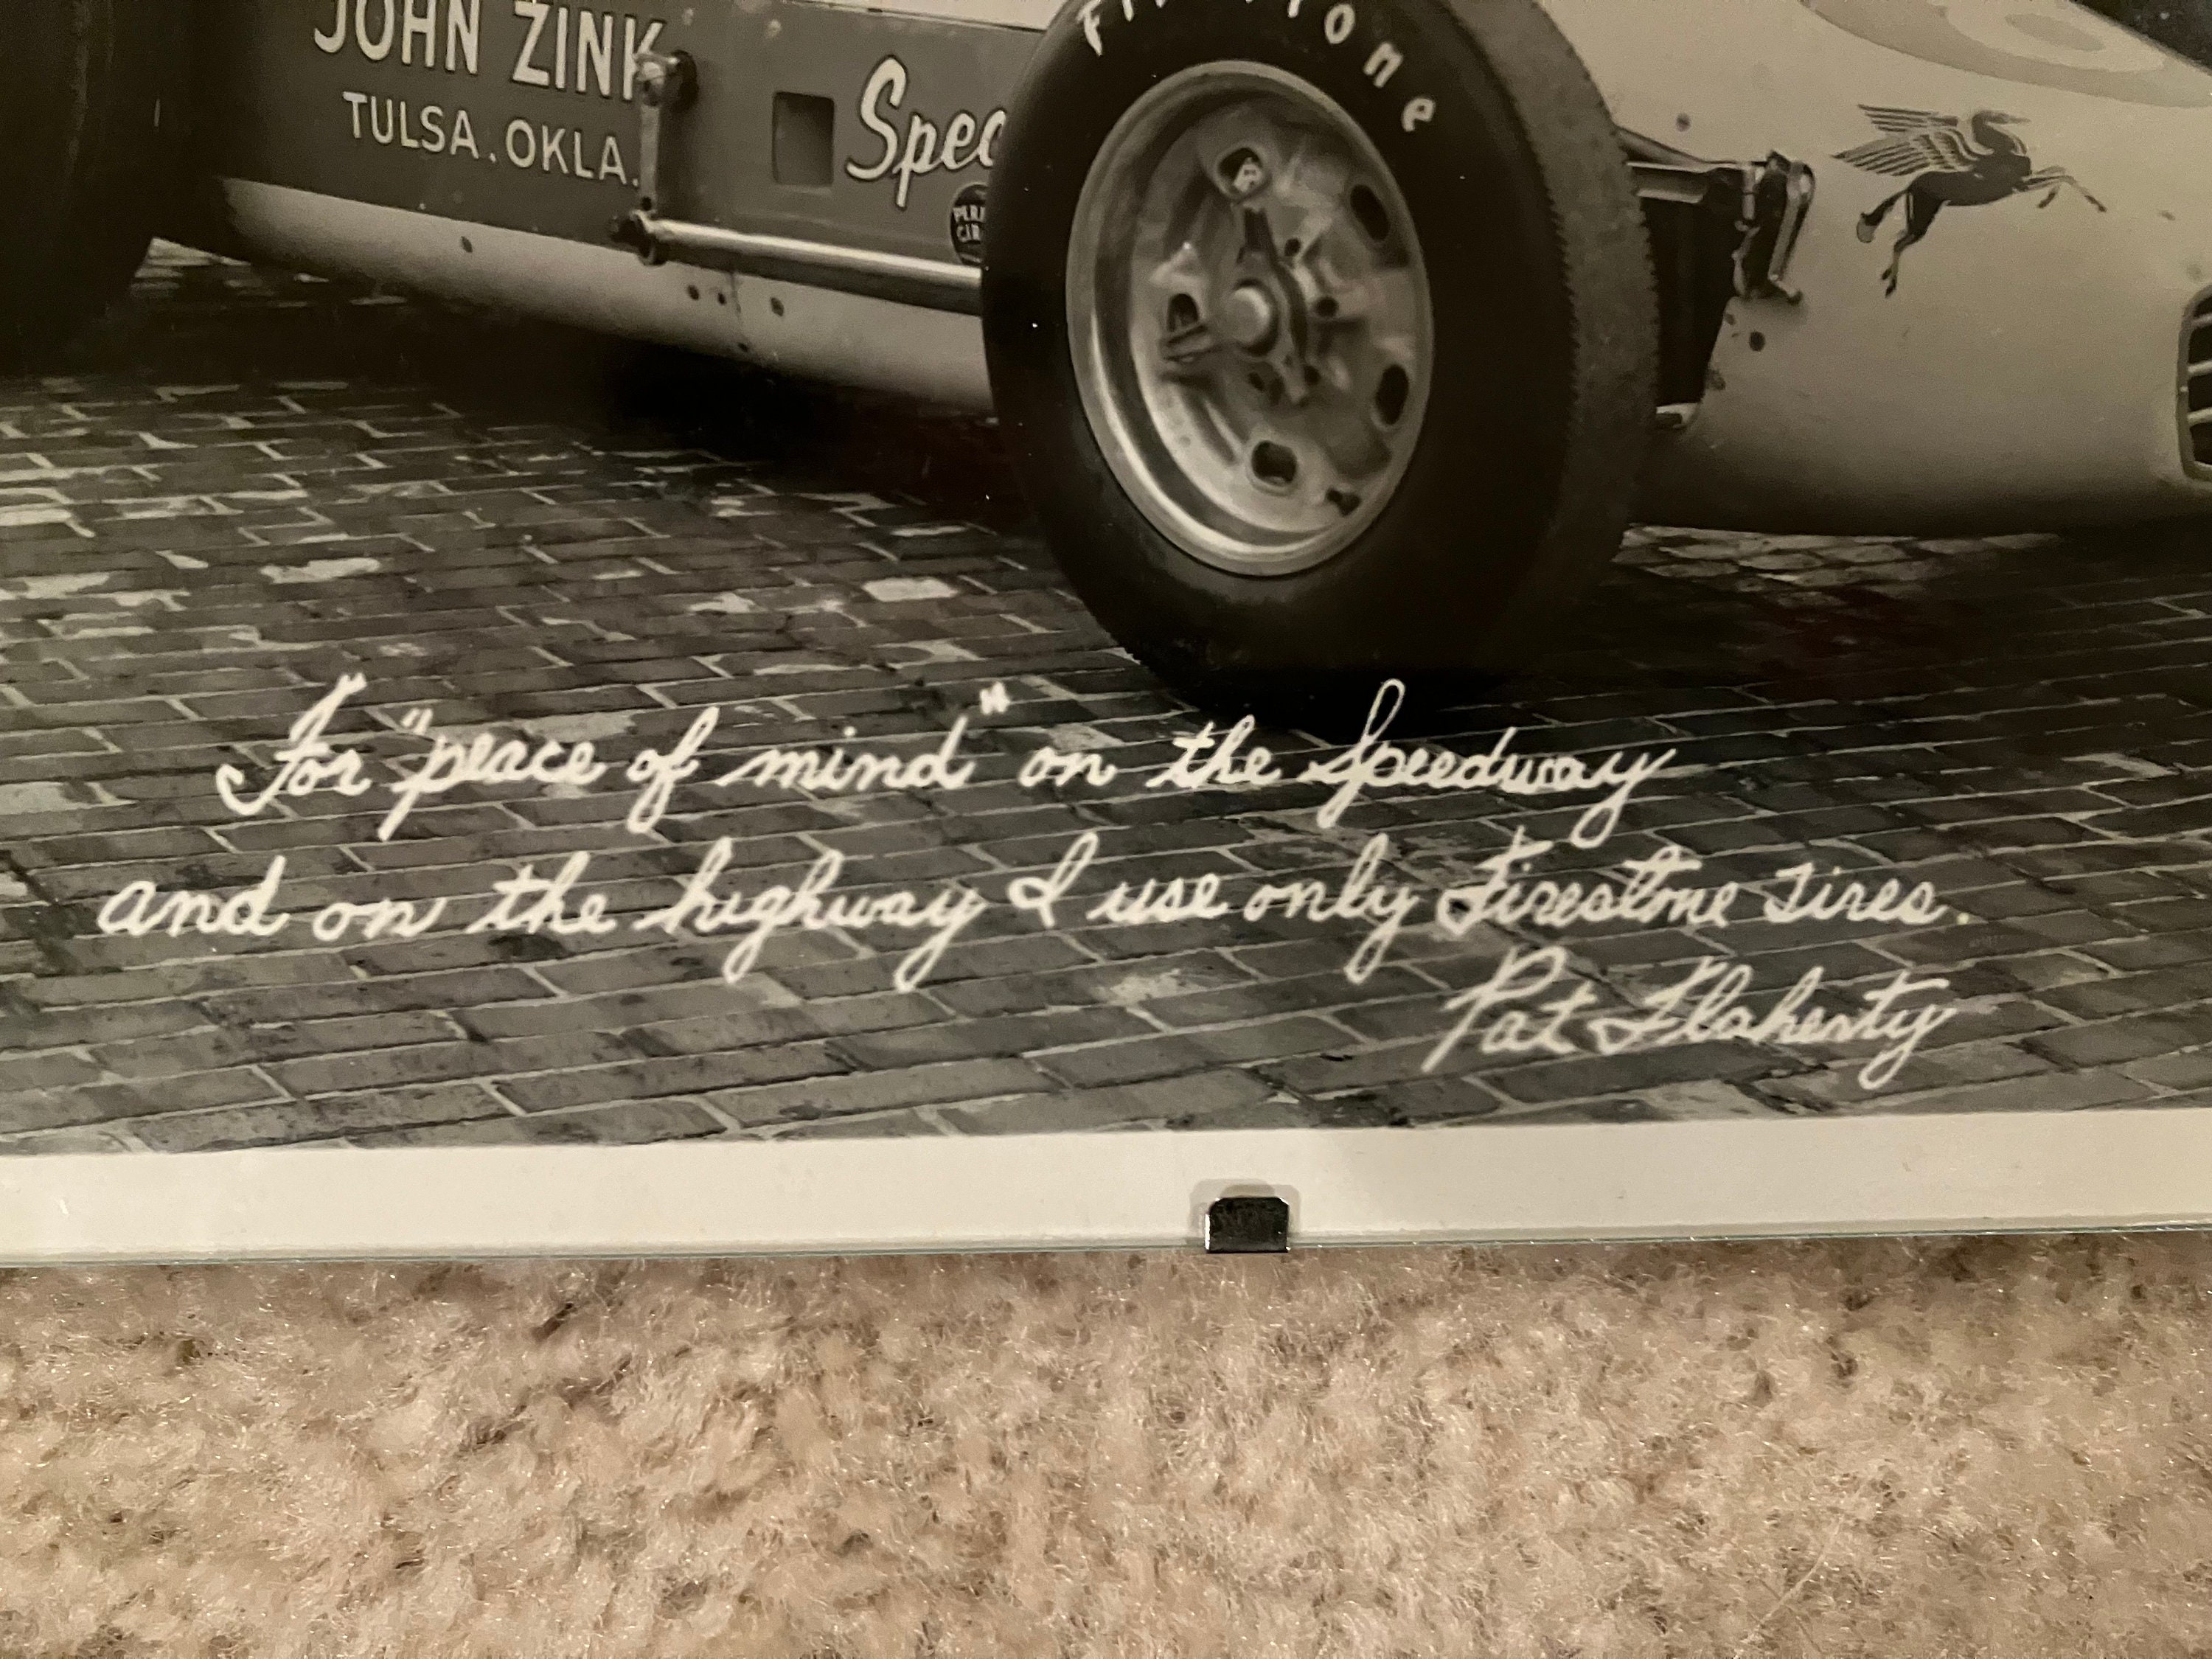 JOHN ZINK
TULSA. OKLA.
For "peace of mind" on the Speedway
and on the highway I use only Firestone Tires.
Pat Flaherty